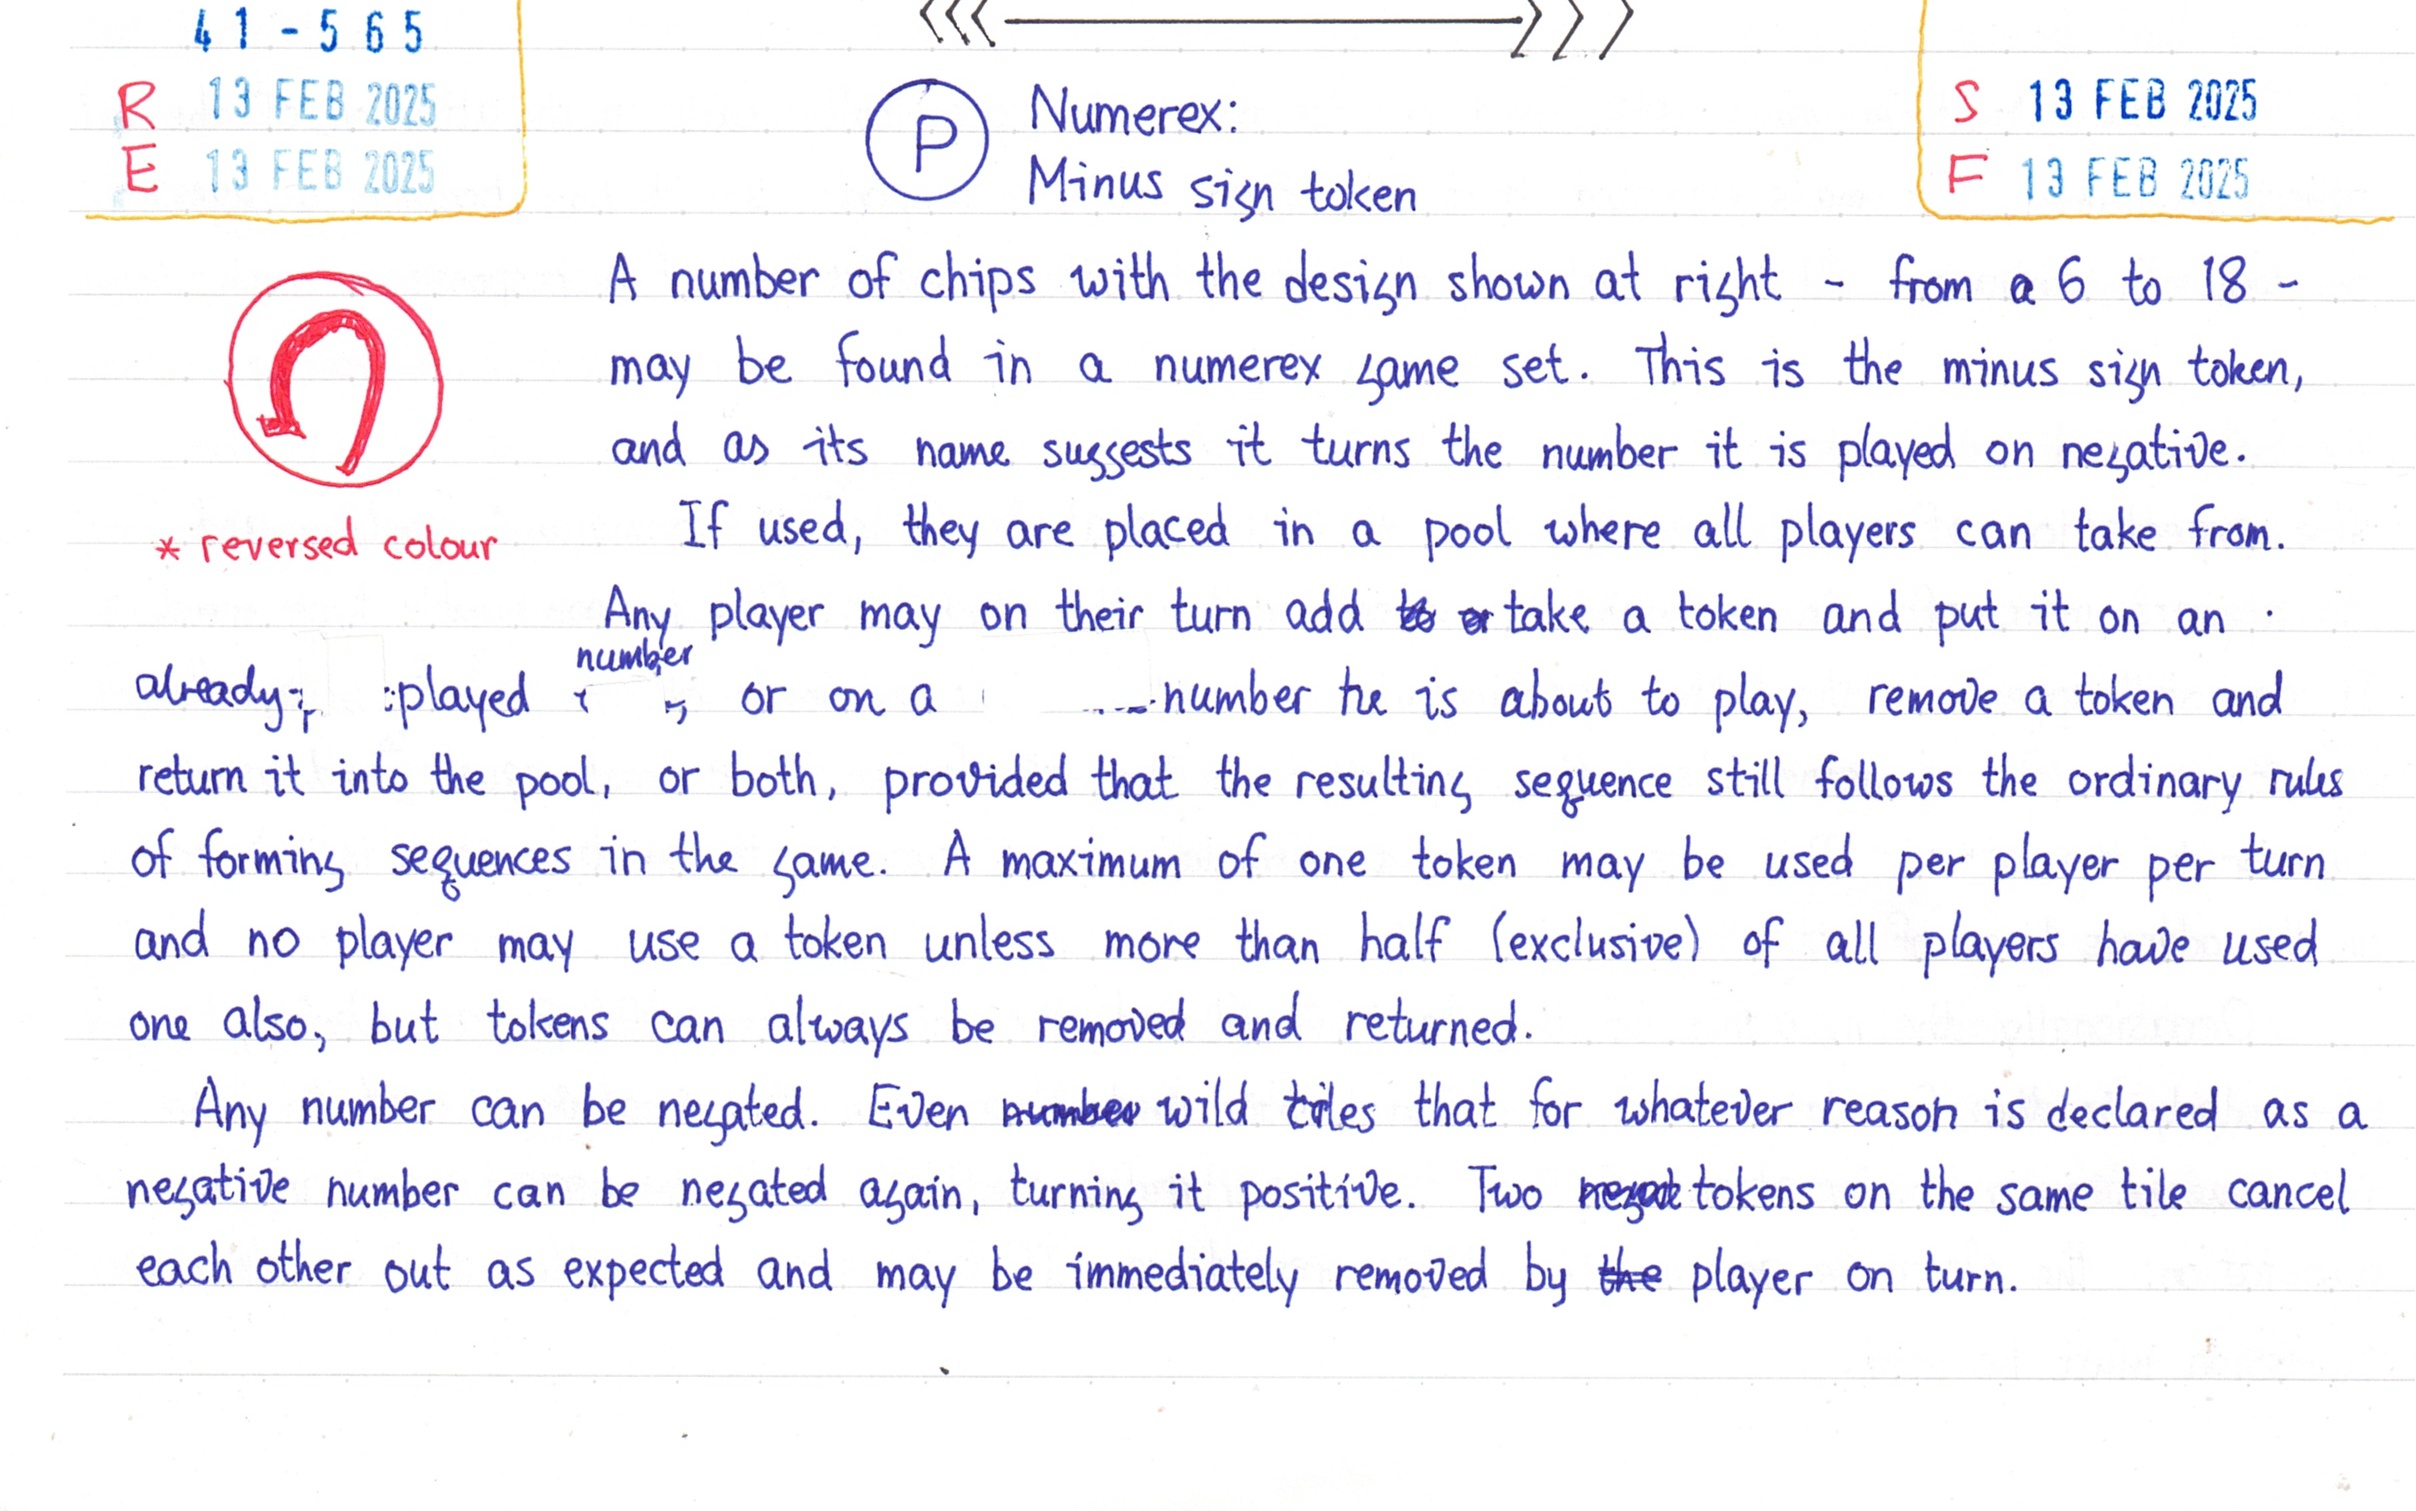 41-565
R 13 FEB 2025
E 13 FEB 2025
S 13 FEB 2025
F 13 FEB 2025
P
Numerex:
Minus sign token
* reversed colour
A number of chips with the design shown at right - from a 6 to 18 -
may be found in a numerex game set. This is the minus sign token,
and as its name suggests it turns the number it is played on negative.
If used, they are placed in a pool where all players can take from.
Any player may on their turn add to or take a token and put it on an
already played number, or on a number he is about to play, remove a token and
return it into the pool, or both, provided that the resulting sequence still follows the ordinary rules
of forming sequences in the game. A maximum of one token may be used per player per turn
and no player may use a token unless more than half (exclusive) of all players have used
one also, but tokens can always be removed and returned.
Any number can be negated. Even number wild tiles that for whatever reason is declared as a
negative number can be negated again, turning it positive. Two negat tokens on the same tile cancel
each other out as expected and may be immediately removed by the player on turn.